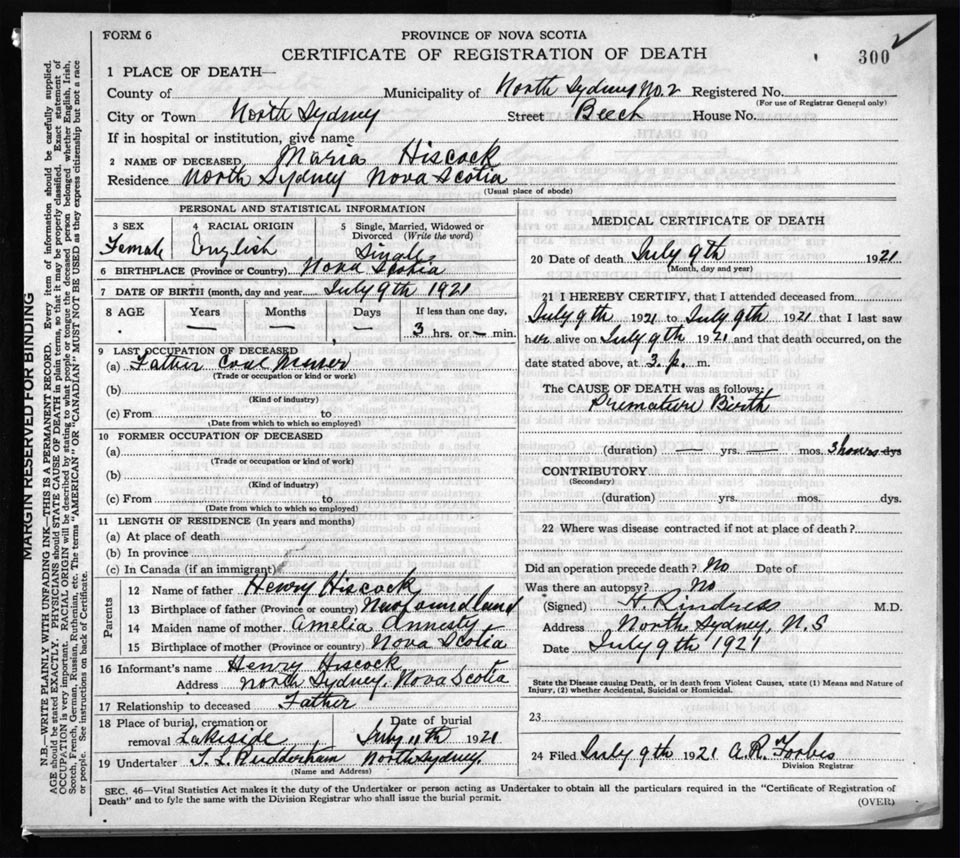 FORM 6
PROVINCE OF NOVA SCOTIA
CERTIFICATE OF REGISTRATION OF DEATH
300 2
1 PLACE OF DEATH—
County of Municipality of North Sydney No. 2 Registered No.
(For use of Registrar General only)
City or Town North Sydney Street Beech House No.
If in hospital or institution, give name
2 NAME OF DECEASED Maria Hiscock
Residence North Sydney Nova Scotia
(Usual place of abode)
PERSONAL AND STATISTICAL INFORMATION
3 SEX 4 RACIAL ORIGIN 5 Single, Married, Widowed or Divorced (Write the word)
Female English Single.
6 BIRTHPLACE (Province or Country) Nova Scotia
7 DATE OF BIRTH (month, day and year) July 9th 1921
8 AGE Years Months Days If less than one day,
— — — 3 hrs. or — min.
9 LAST OCCUPATION OF DECEASED
(a) Father Coal Miner
(Trade or occupation or kind or work)
(b)
(Kind of industry)
(c) From to
(Date from which to which so employed)
10 FORMER OCCUPATION OF DECEASED
(a)
(Trade or occupation or kind of work)
(b)
(Kind of industry)
(c) From to
(Date from which to which so employed)
11 LENGTH OF RESIDENCE (In years and months)
(a) At place of death
(b) In province
(c) In Canada (if an immigrant)
Parents
12 Name of father Henry Hiscock
13 Birthplace of father (Province or country) Newfoundland
14 Maiden name of mother Amelia Annesty
15 Birthplace of mother (Province or country) Nova Scotia
16 Informant's name Henry Hiscock
Address North Sydney, Nova Scotia
17 Relationship to deceased Father
18 Place of burial, cremation or removal Lakeside Date of burial July 11th 1921
19 Undertaker North Sydney.
(Name and Address)
MEDICAL CERTIFICATE OF DEATH
20 Date of death July 9th 1921
(Month, day and year)
21 I HEREBY CERTIFY, that I attended deceased from
July 9th 1921 to July 9th 1921 that I last saw
her alive on July 9th 1921 and that death occurred, on the
date stated above, at 3 p. m.
The CAUSE OF DEATH was as follows:
Premature Birth
(duration) — yrs. — mos. 3 hours dys
CONTRIBUTORY
(Secondary)
(duration) yrs. mos. dys.
22 Where was disease contracted if not at place of death?
Did an operation precede death? No Date of
Was there an autopsy? No
(Signed) M.D.
Address North Sydney, N.S
Date July 9th 1921
State the Disease causing Death, or in death from Violent Causes, state (1) Means and Nature of Injury, (2) whether Accidental, Suicidal or Homicidal.
23
24 Filed July 9th 1921 A.R. Forbes
Division Registrar
SEC. 46—Vital Statistics Act makes it the duty of the Undertaker or person acting as Undertaker to obtain all the particulars required in the "Certificate of Registration of
Death" and to fyle the same with the Division Registrar who shall issue the burial permit.
(OVER)
MARGIN RESERVED FOR BINDING
N.B.—WRITE PLAINLY WITH UNFADING INK—THIS IS A PERMANENT RECORD. Every item of information should be carefully supplied.
AGE should be stated EXACTLY. PHYSICIANS should STATE CAUSE OF DEATH in plain terms, so that it may be properly classified. Exact statement of
OCCUPATION is very important. RACIAL ORIGIN will be described by stating to what people or tongue the deceased person belonged whether English, Irish,
Scotch, French, German, Russian, Ruthenian, etc. The terms "AMERICAN" OR "CANADIAN" MUST NOT BE USED as they express citizenship but not a race
or people. See instructions on back of Certificate.